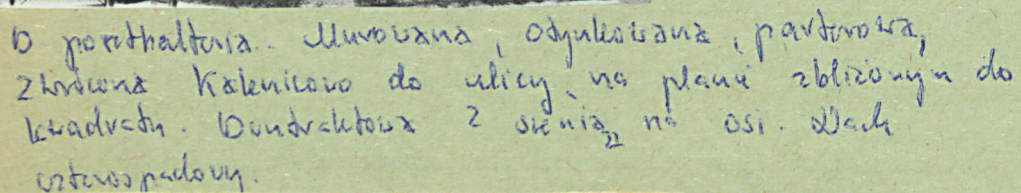 D poczthalteria. Murowana, otynkowana, parterowa,
zwrócona kalenicowo do ulicy, na planie zbliżonym do
kwadratu. Dwutraktowa z sienią na osi. Dach
czterospadowy.